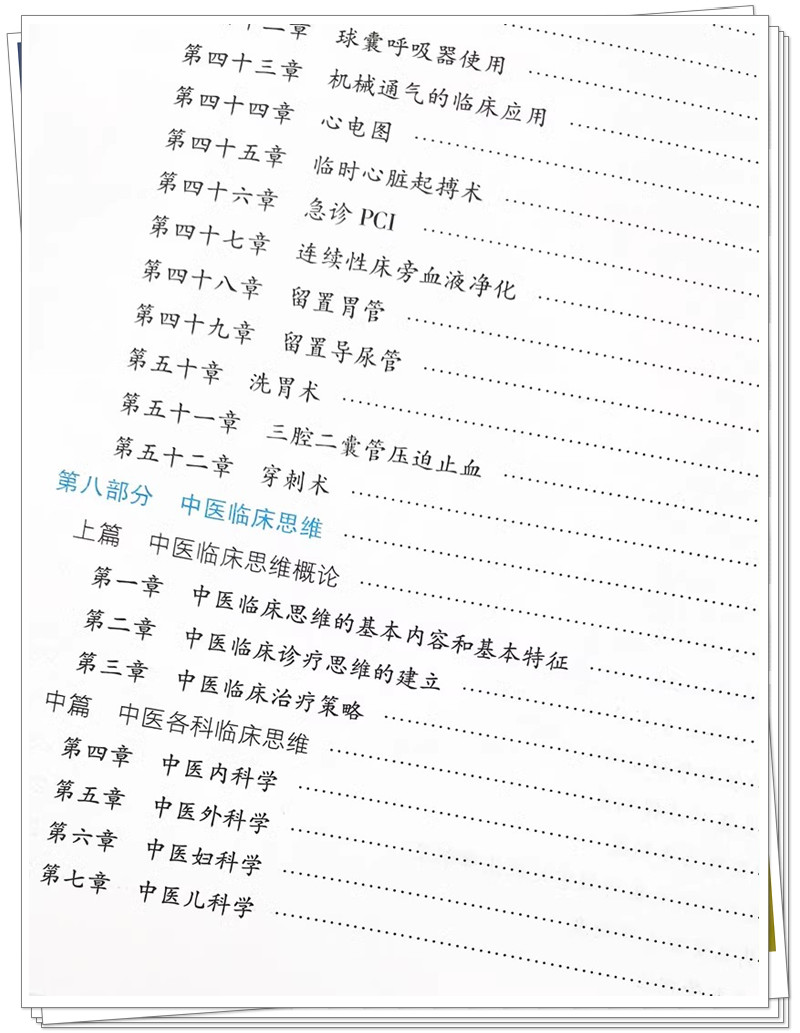 十二章 球囊呼吸器使用 ……
第四十三章 机械通气的临床应用 ……
第四十四章 心电图 ……
第四十五章 临时心脏起搏术 ……
第四十六章 急诊 PCI ……
第四十七章 连续性床旁血液净化 ……
第四十八章 留置胃管 ……
第四十九章 留置导尿管 ……
第五十章 洗胃术 ……
第五十一章 三腔二囊管压迫止血 ……
第五十二章 穿刺术 ……
第八部分 中医临床思维 ……
上篇 中医临床思维概论 ……
第一章 中医临床思维的基本内容和基本特征 ……
第二章 中医临床诊疗思维的建立 ……
第三章 中医临床治疗策略 ……
中篇 中医各科临床思维 ……
第四章 中医内科学 ……
第五章 中医外科学 ……
第六章 中医妇科学 ……
第七章 中医儿科学 ……